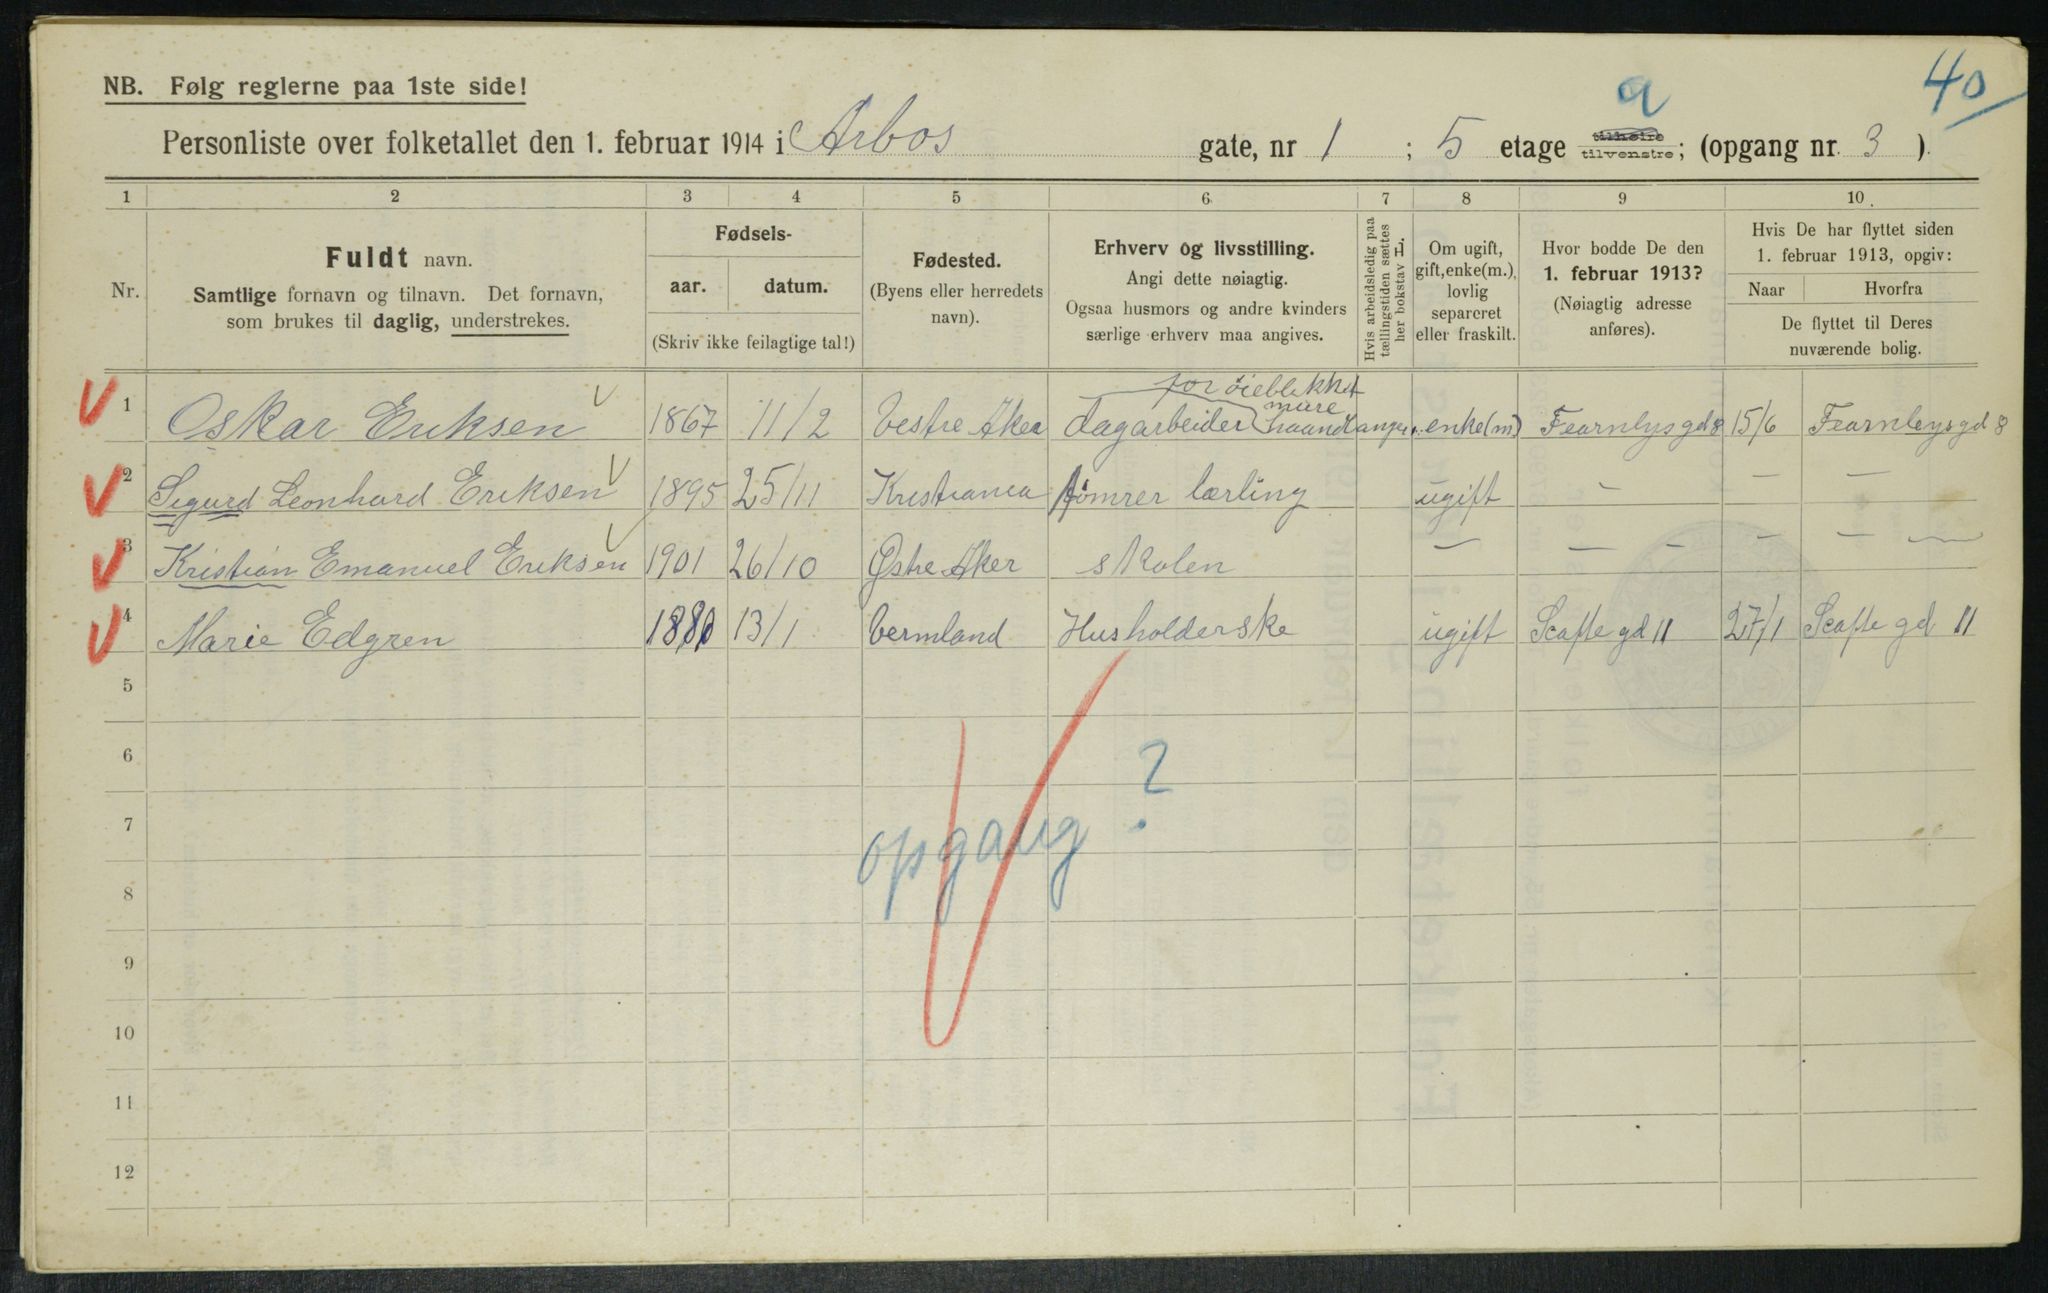 40
NB. Følg reglerne paa 1ste side!
a
Personliste over folketallet den 1. februar 1914 i Arbos gate, nr 1 ; 5 etage tilhøire tilvenstre; (opgang nr. 3 ).
1 2 3 4 5 6. 7 8 9 10.
Nr.
Fuldt navn.
Samtlige fornavn og tilnavn. Det fornavn,
som brukes til daglig, understrekes.
Fødsels-
aar. datum.
(Skriv ikke feilagtige tal!)
Fødested.
(Byens eller herredets
navn).
Erhverv og livsstilling.
Angi dette nøiagtig.
Ogsaa husmors og andre kvinders
særlige erhverv maa angives.
Hvis arbeidsledig paa
tællingstiden sættes
her bokstav L.
Om ugift,
gift, enke(m.),
lovlig
separeret
eller fraskilt.
Hvor bodde De den
1. februar 1913?
(Nøiagtig adresse
anføres).
Hvis De har flyttet siden
1. februar 1913, opgiv:
Naar Hvorfra
De flyttet til Deres
nuværende bolig.
for øieblikket
mure
1 Oskar Eriksen 1867 11/2 Vestre Aker dagarbeider haandlanger. enke(m) Fearnlys gd 8 15/6 Fearnleys gd 8
2 Sigurd Leonhard Eriksen 1895 25/11 Kristiania tømrer lærling ugift – – –
3 Kristian Emanuel Eriksen 1901 26/10 Østre Aker skolen – – – – – –
4 Marie Edgren 1880 13/1 Vermland Husholderske ugift Scafte gd 11 27/1 Scafte gd 11
5
6
7
opgang?
8
9
10
11
12